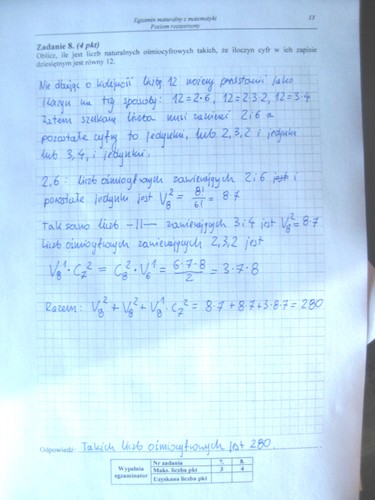 Egzamin maturalny z matematyki
Poziom rozszerzony
13
Zadanie 8. (4 pkt)
Oblicz, ile jest liczb naturalnych ośmiocyfrowych takich, że iloczyn cyfr w ich zapisie
dziesiętnym jest równy 12.
Nie dbając o kolejność liczbę 12 możemy przedstawić jako
iloczyn na trzy sposoby: 12=2·6, 12=2·3·2, 12=3·4
Zatem szukana liczba musi zawierać 2 i 6 a
pozostałe cyfry to jedynki, lub 2,3,2 i jedynki
lub 3,4, i jedynki.
2,6: liczb ośmiocyfrowych zawierających 2 i 6 i
pozostałe jedynki jest V₈² = 8!/6! = 8·7
Tak samo liczb -||- zawierających 3 i 4 jest V₈²=8·7
liczb ośmiocyfrowych zawierających 2,3,2 jest
V₈¹·C₇² = C₈²·V₆¹ = 6·7·8/2 = 3·7·8
Razem: V₈² + V₈² + V₈¹·C₇² = 8·7+8·7+3·8·7 = 280
Odpowiedź: Takich liczb ośmiocyfrowych jest 280.
Wypełnia egzaminator
Nr zadania 7. 8.
Maks. liczba pkt 3 4
Uzyskana liczba pkt